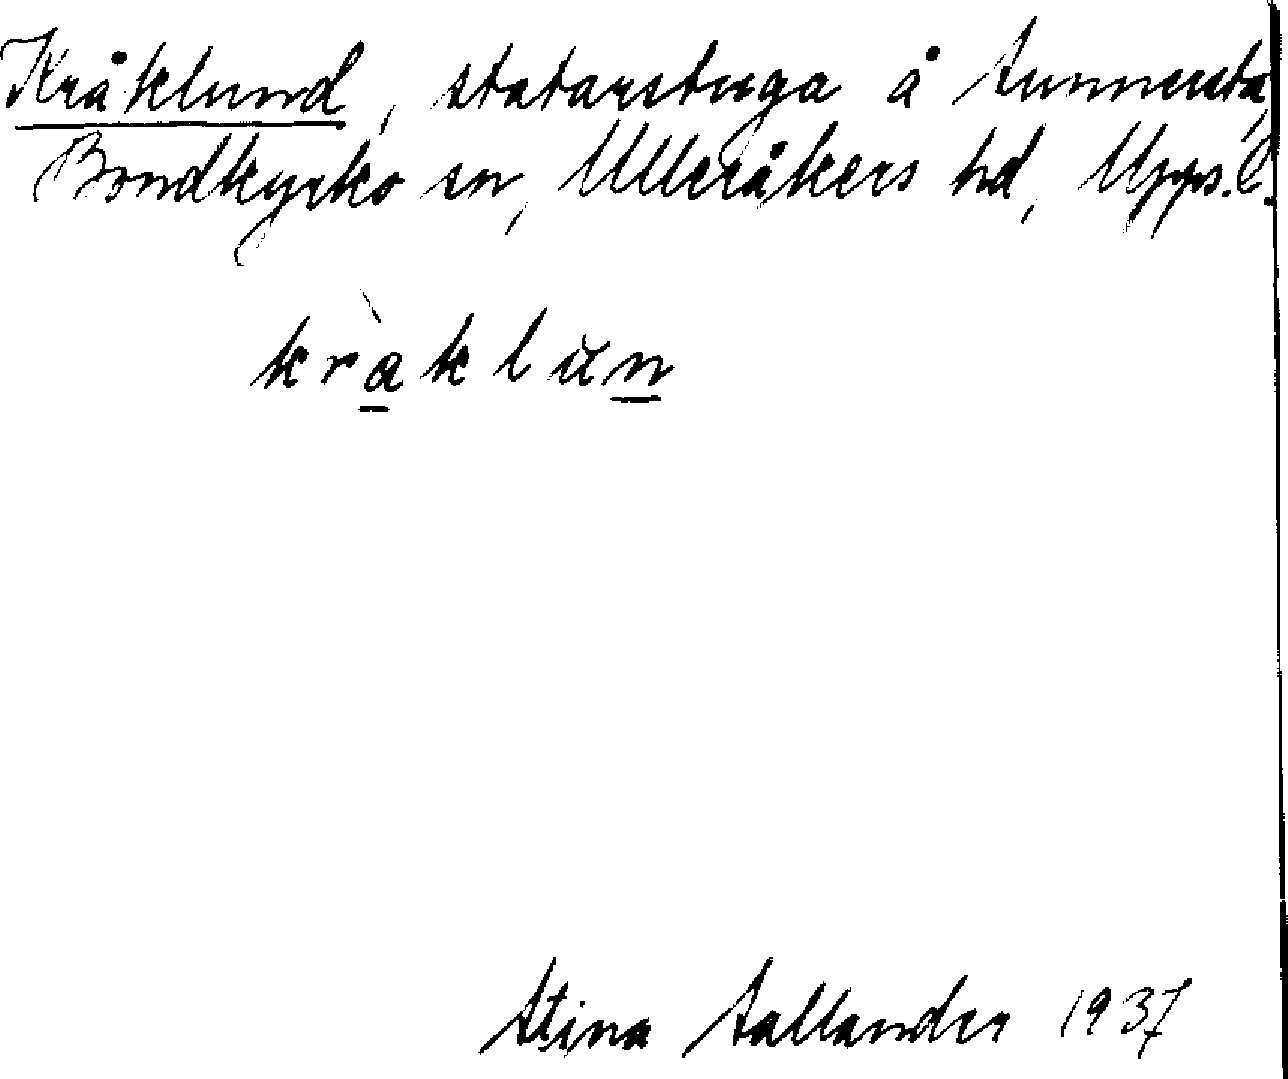 Kråklund, statarstuga å Sunnersta,
Bondkyrko sn, Ulleråkers hd, Upps. l.
kràklŭn
Stina Sallander 1937